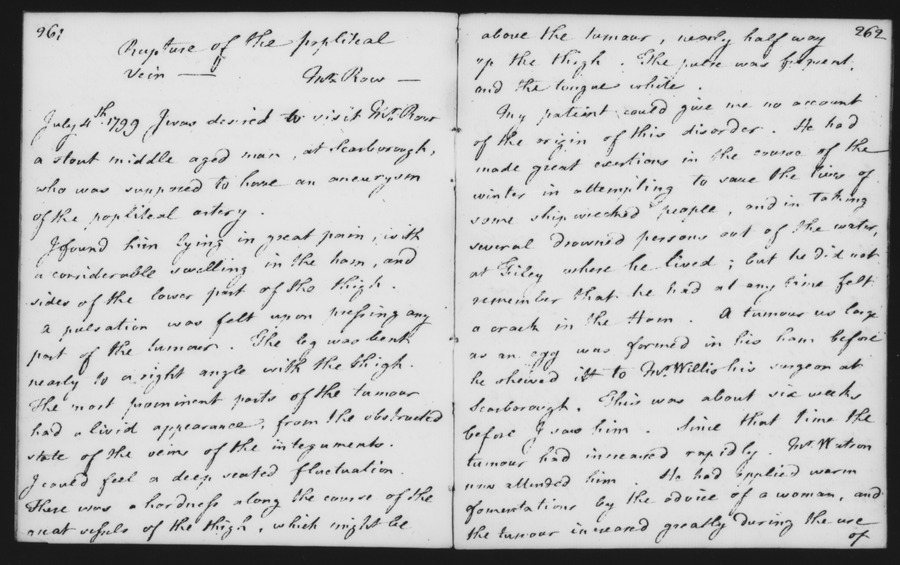 261
Rupture of the popliteal
Vein — Mr. Row —
July 4th. 1799 I was desired to visit Mr. Row
a stout middle aged man, at Scarborough,
who was supposed to have an aneurysm
of the popliteal artery.
I found him lying in great pain, with
a considerable swelling in the ham, and
sides of the lower part of the thigh.
A pulsation was felt upon pressing any
part of the tumour. The leg was bent
nearly to a right angle with the thigh.
The most prominent parts of the tumour
had a livid appearance, from the obstructed
state of the veins of the integuments.
I could feel a deep seated fluctuation.
There was a hardness along the course of the
great vessels of the thigh, which might be
262
above the tumour, nearly half way
up the thigh. The pulse was frequent,
and the tongue white.
My patient could give me no account
of the origin of this disorder. He had
made great exertions in the course of the
winter in attempting to save the lives of
some shipwrecked people, and in taking
several drowned persons out of the water,
at Filey where he lived; but he did not
remember that he had at any time felt
a crack in the Ham. A tumour as large
as an egg was formed in his ham before
he shewed it to Mr. Willis his surgeon at
Scarborough. This was about six weeks
before I saw him. Since that time the
tumour had increased rapidly. Mr. Watson
now attended him. He had applied warm
fomentations by the advice of a woman, and
the tumour increased greatly during the use
of